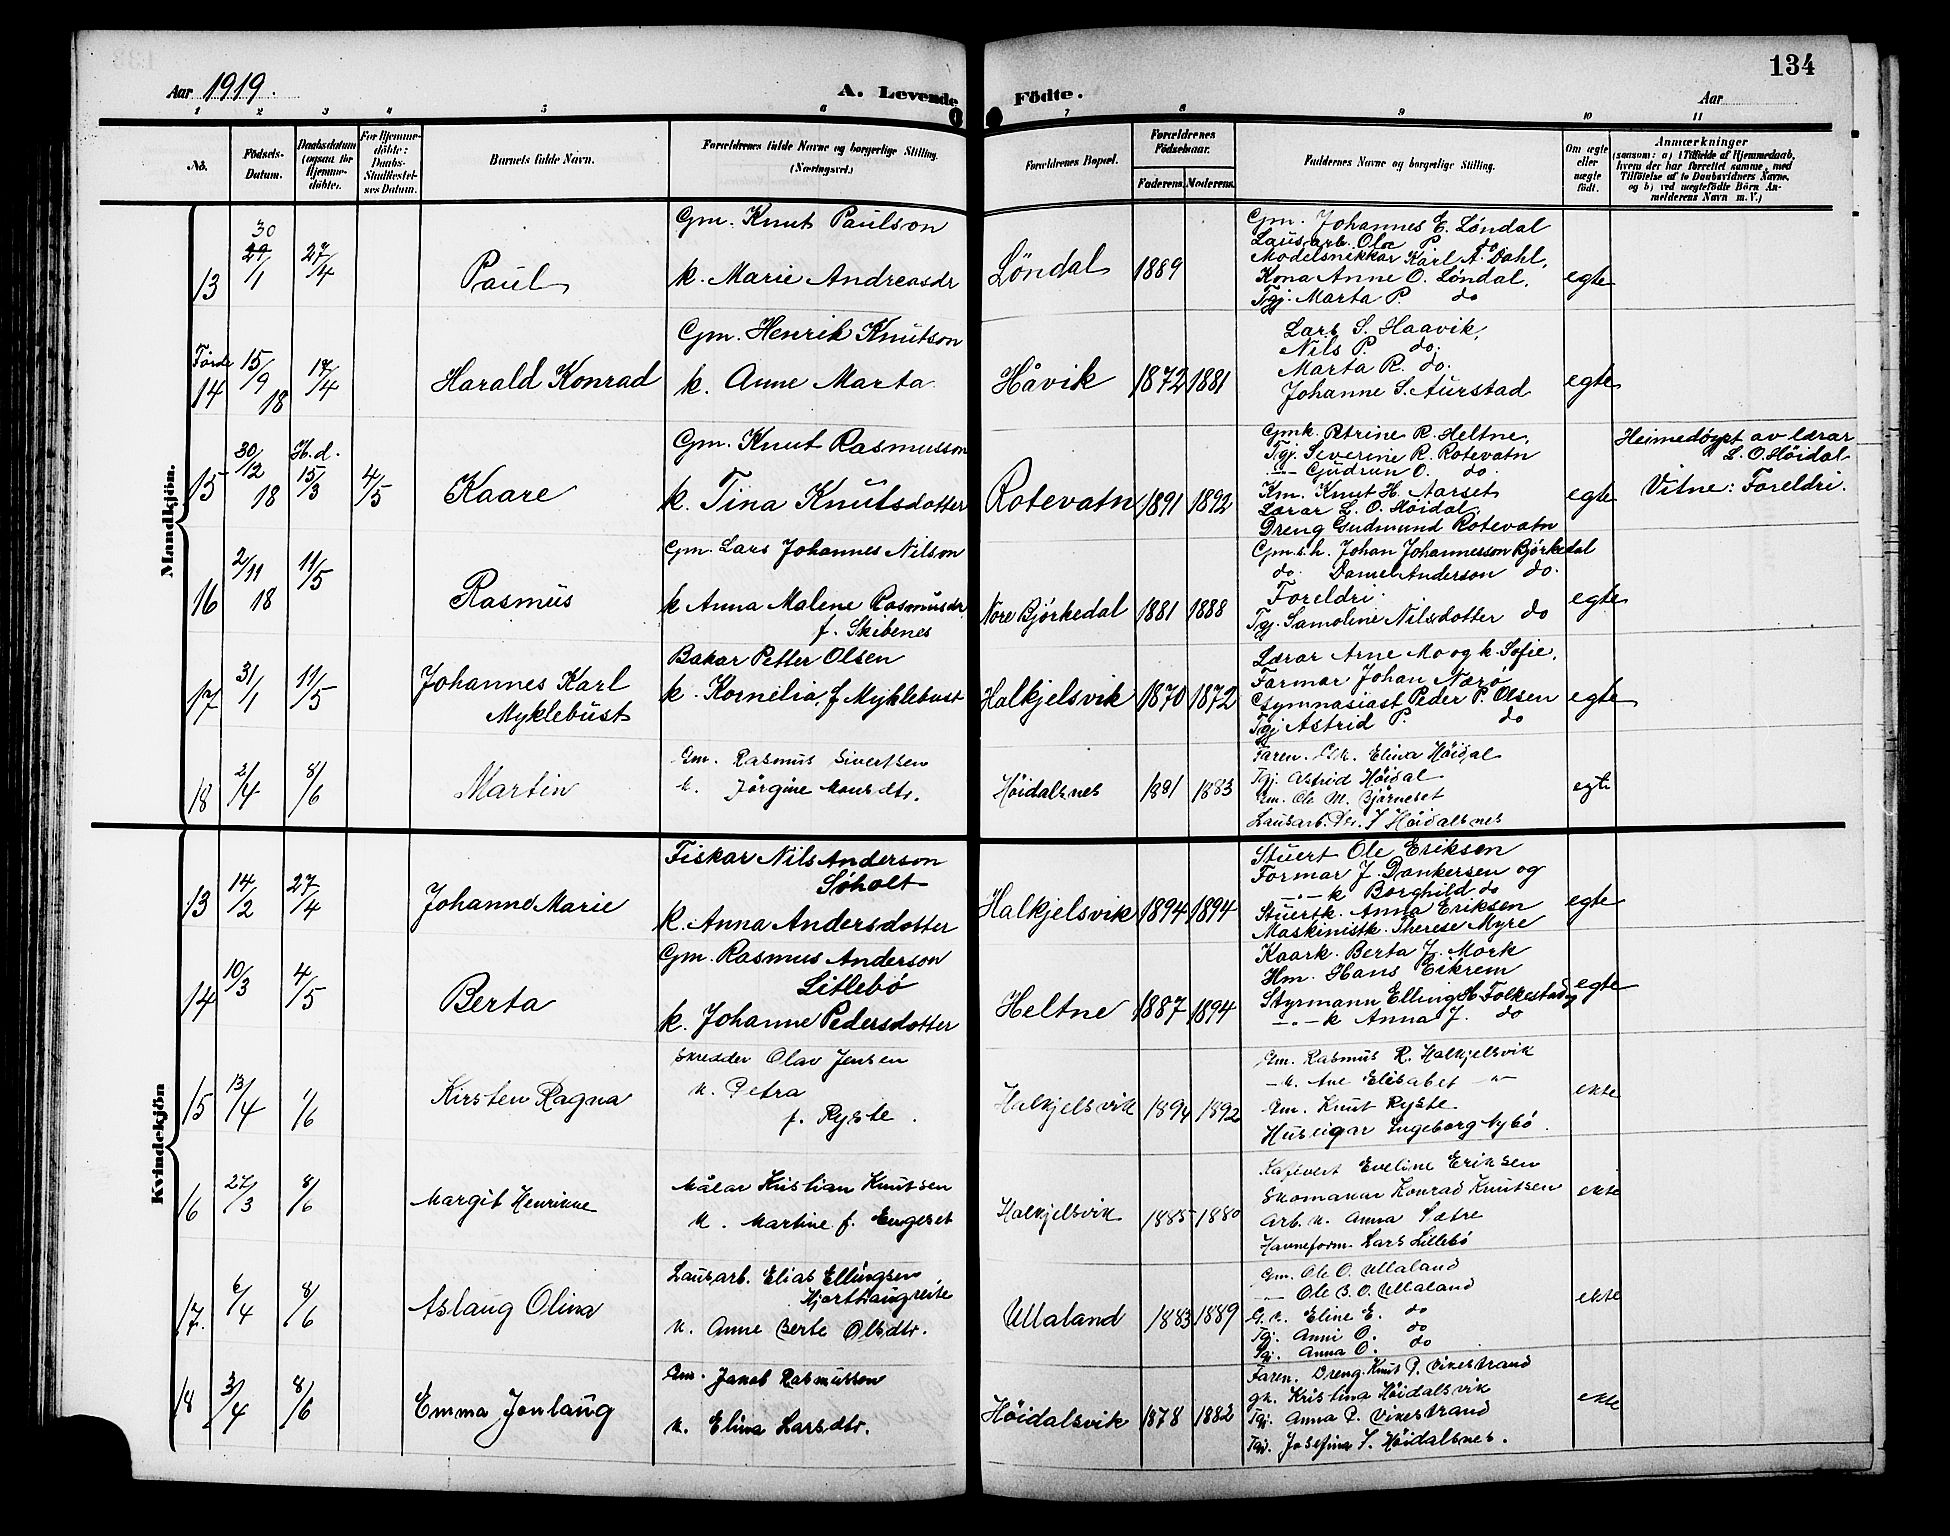 134
Aar 1919.
A. Levende Födte.
Aar
1 2 3 4 5 6 7 8 9 10 11
No.
Födsels-Datum.
Daabsdatum (ogsaa for Hjemmedöbte).
For Hjemmedöbte: Daabs-Stadfæstelses Datum.
Barnets fulde Navn.
Forældrenes fulde Navne og borgerlige Stilling. (Næringsvei.)
Forældrenes Bopæl.
Forældrenes Födselsaar.
Faderens. Moderens.
Faddernes Navne og borgerlige Stilling.
Om ægte eller uægte födt.
Anmærkninger
(saasom: a) i Tilfælde af Hjemmedaab, hvem der har forrettet samme, med Tilföielse af to Daabsvidners Navne, og b) ved uægtefödte Börn Anmelderens Navn m. V.)
Mandkjön.
13
30
29/1
27/4
Paul
Gm. Knut Paulson
k. Marie Andreasdr
Løndal
1889
Gm. Johannes E. Løndal
Lausarb. Ola P. do
Modelsnikkar Karl A. Dahl,
Kona Anne O. Løndal,
Tgj. Marta P. do
egte
Førde
14
15/9 18
17/4
Harald Konrad
Gm. Henrik Knutson
k. Anne Marta
Håvik
1872 1881
Lars S. Haavik,
Nils P. do.
Marta R. do.
Johanne S. Aurstad
egte
15
30/12 18
H.d. 15/3
4/5
Kaare
Gm. Knut Rasmusson
k. Tina Knutsdotter
Rotevatn
1891 1892
Gmk. Petrine R. Heltne,
Tgj. Severine R. Rotevatn
-"- Gudrun O. do.
Km. Knut H. Aarset
Lærar L. O. Höidal,
Dreng Gudmund Rotevatn
egte
Heimedöypt av lærar
L. O. Höidal
Vitne: Foreldri.
16
2/11 18
11/5
Rasmus
Gm. Lars Johannes Nilson
k Anna Malene Rasmusdr
f. Skibenes
Nore Bjørkedal
1881 1888
Gm.s.h. Johan Johannesson Bjørkedal
do. Daniel Anderson do.
Foreldri.
Tgj. Samoline Nilsdotter do
egte
17
31/1
11/5
Johannes Karl
Myklebust
Bakar Petter Olsen
k. Kornelia, f Myklebust
Halkjelsvik
1870 1872
Lærar Arne Mo og k. Sofie,
Farmar Johan Nærø
Gymnasiast Peder P. Olsen
Tgj Astrid P. do
egte
18
2/4
8/6
Martin
Gm. Rasmus Sivertsen
k. Jörgine Monsdtr.
Höidalsnes
1891 1883
Faren. Gk. Elina Höidal
Tgj Astrid Höidal
Gm. Ole M. Björneset
Lausarb. Per. S Höidalsnes
egte
Kvindekjön
13
14/2
27/4
Johanne Marie
Fiskar Nils Anderson
Søholt
k. Anna Andersdotter
Halkjelsvik
1894 1894
Stuert Ole Eriksen
Formar J. Dankersen og
-"- k Borghild do
Stuertk. Anna Eriksen
Maskinistk. Therese Myre
egte
14
10/3
4/5
Berta
Gm. Rasmus Anderson
Litlebø
k. Johanne Pedersdotter
Heltne
1887 1894
Kaark. Berta J. Mork
Hm. Hans Eikrem
Styrmann Elling H. Folkestad og
-"- k Anna J. do
egte
15
13/4
1/6
Kirsten Ragna
Skredder Olav Jensen
k. Petra
f. Ryste.
Halkjelsvik
1894 1892
Gm. Rasmus R. Halkjelsvik
- k. Ane Elisabet -"-
Gm. Knut Ryste
Huseigar Ingeborg Nybö.
ekte
16
27/3
8/6
Margit Henrikke
Målar Kristian Knutsen
k. Martine f. Engeset
Halkjelsvik
1885 1880
Eveline Eriksen
Skomakar Konrad Knutsen
Arb. k. Anna Sætre
Havneform. Lars Lillebö
ekte
17.
6/4
8/6
Aslaug Olina
Lausarb. Elias Ellingsen
Hjorthaugreite
k. Anne Berte Olsdtr.
Ullaland
1883 1889
Gm. Ole O. Ullaland
-"- Ole B. O. Ullaland
G. k. Eline E. do
Tgj. Anni O. do
Tgj. Anna O. do
ekte
18
3/4
8/6
Emma Jonlaug
Gm. Jakob Rasmussen
k. Elina Larsdtr.
Höidalsvik
1878 1882
Faren. Dreng. Knut P. Vikestrand
gk. Kristina Höidalsvik
Tgj. Anna P. Vikestrand
Tgj. Josefina S. Höidalsnes.
ekte